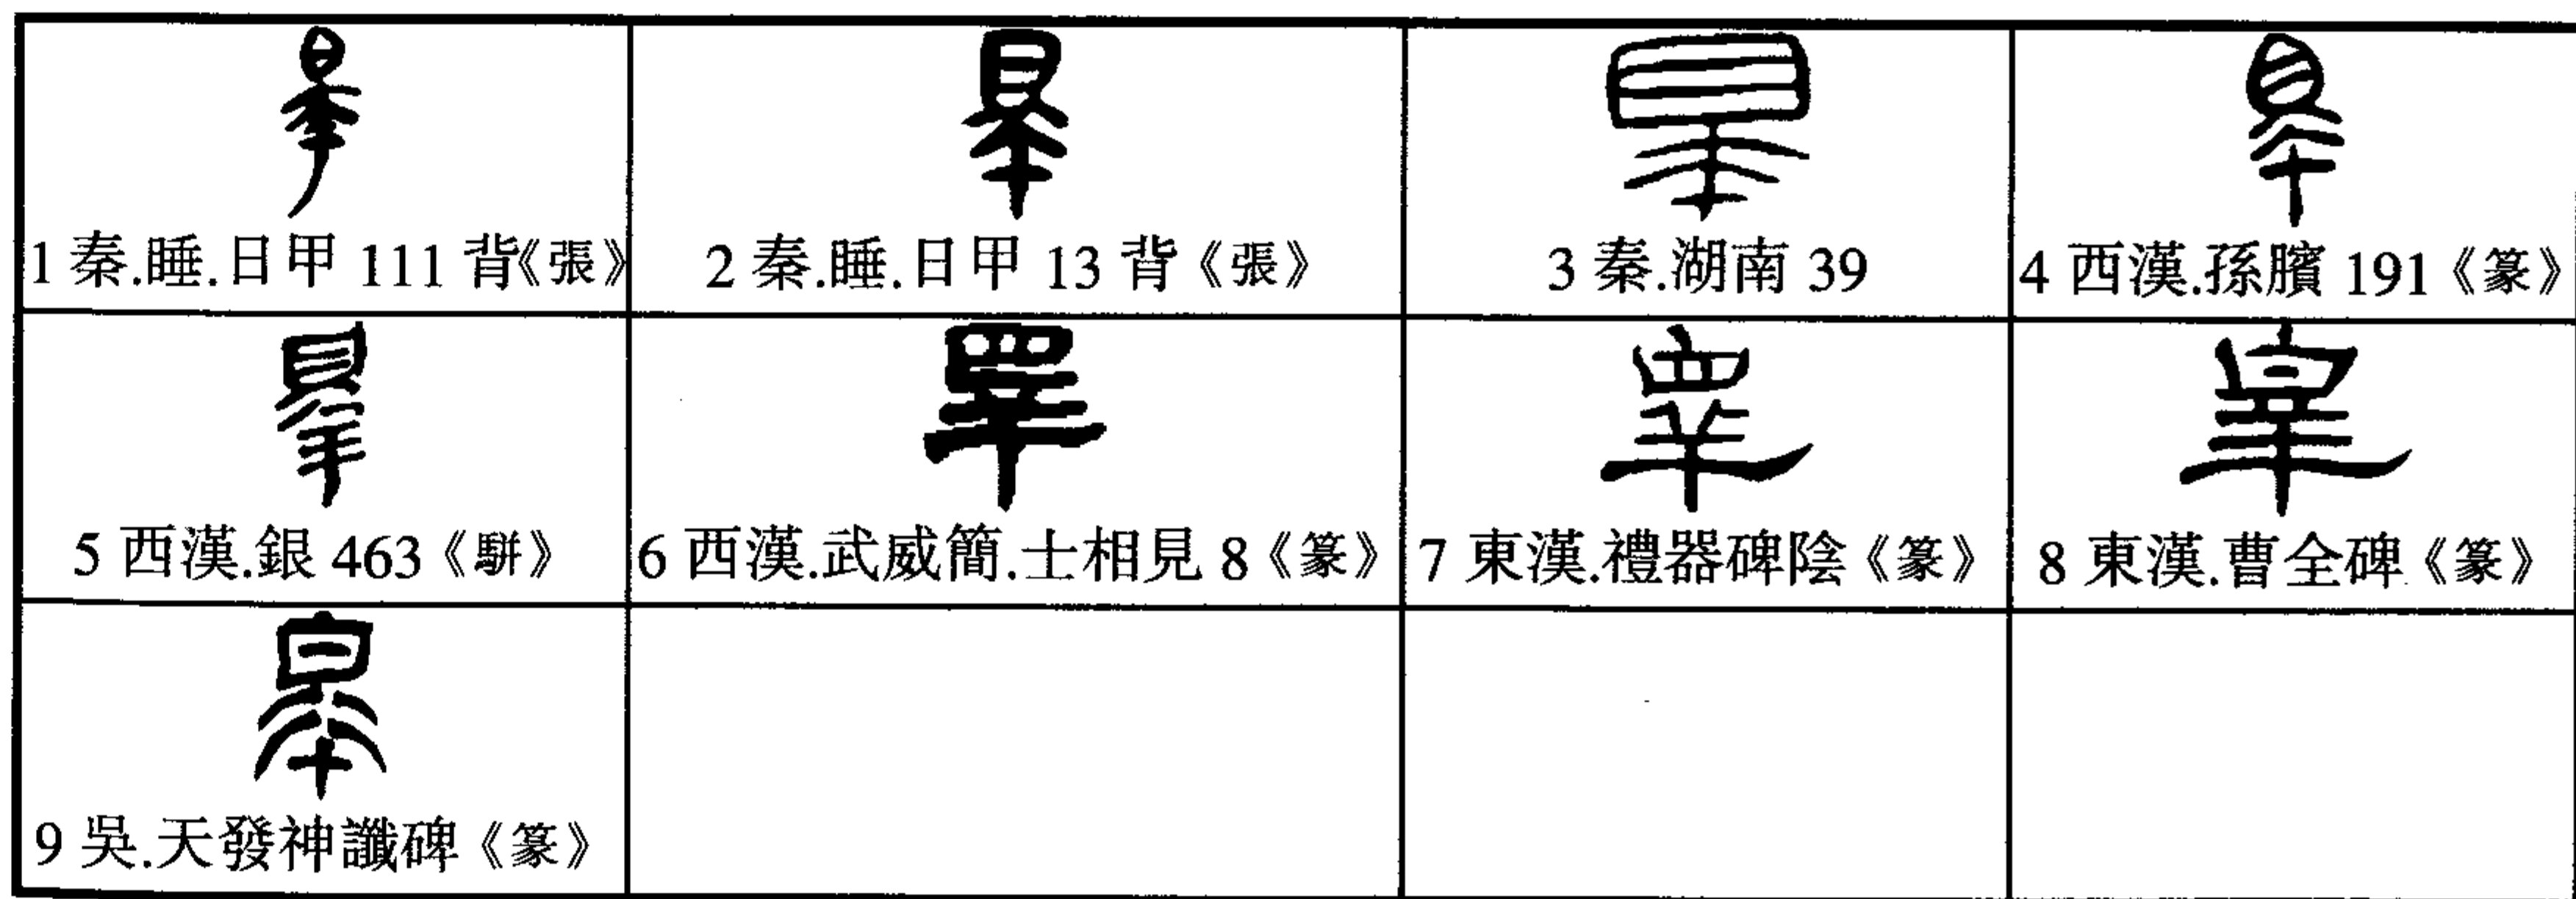 1 秦.睡.日甲 111 背《張》
2 秦.睡.日甲 13 背《張》
3 秦.湖南 39
4 西漢.孫臏 191《篆》
5 西漢.銀 463《駢》
6 西漢.武威簡.士相見 8《篆》
7 東漢.禮器碑陰《篆》
8 東漢.曹全碑《篆》
9 吳.天發神讖碑《篆》